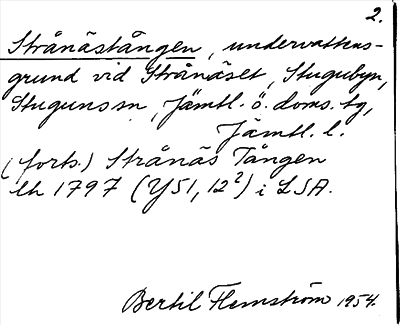 2.
Strånästången, undervattens-
grund vid Strånäset, Stugubyn,
Stuguns sn, Jämtl. ö. doms. tg,
Jämtl. l.
(forts.) Strånäs Tången
lh 1797 (Y51, 12²) i LSA.
Bertil Flemström 1954.